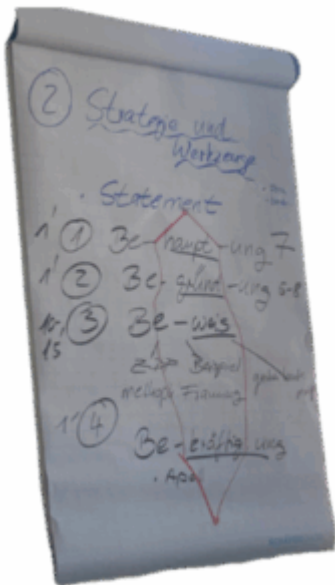 ② Strategie und
Werkzeuge
· Statement
1' ① Be-haupt-ung 7
1' ② Be-gründ-ung 6-8
③ Be-weis
15
Beispiel
Framing
1' ④
Be-kräftig-ung